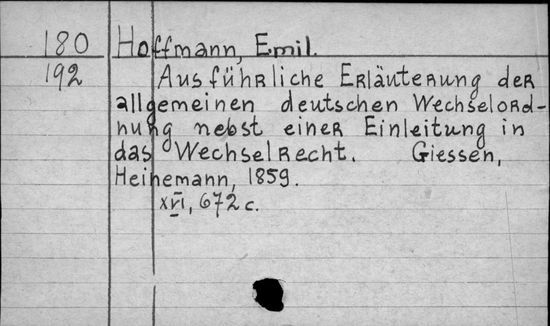 180 Hoffmann, Emil.
192 Ausführliche Erläuterung der
allgemeinen deutschen Wechselord-
nung nebst einer Einleitung in
das Wechselrecht. Giessen,
Heinemann, 1859.
XVI, 672 c.